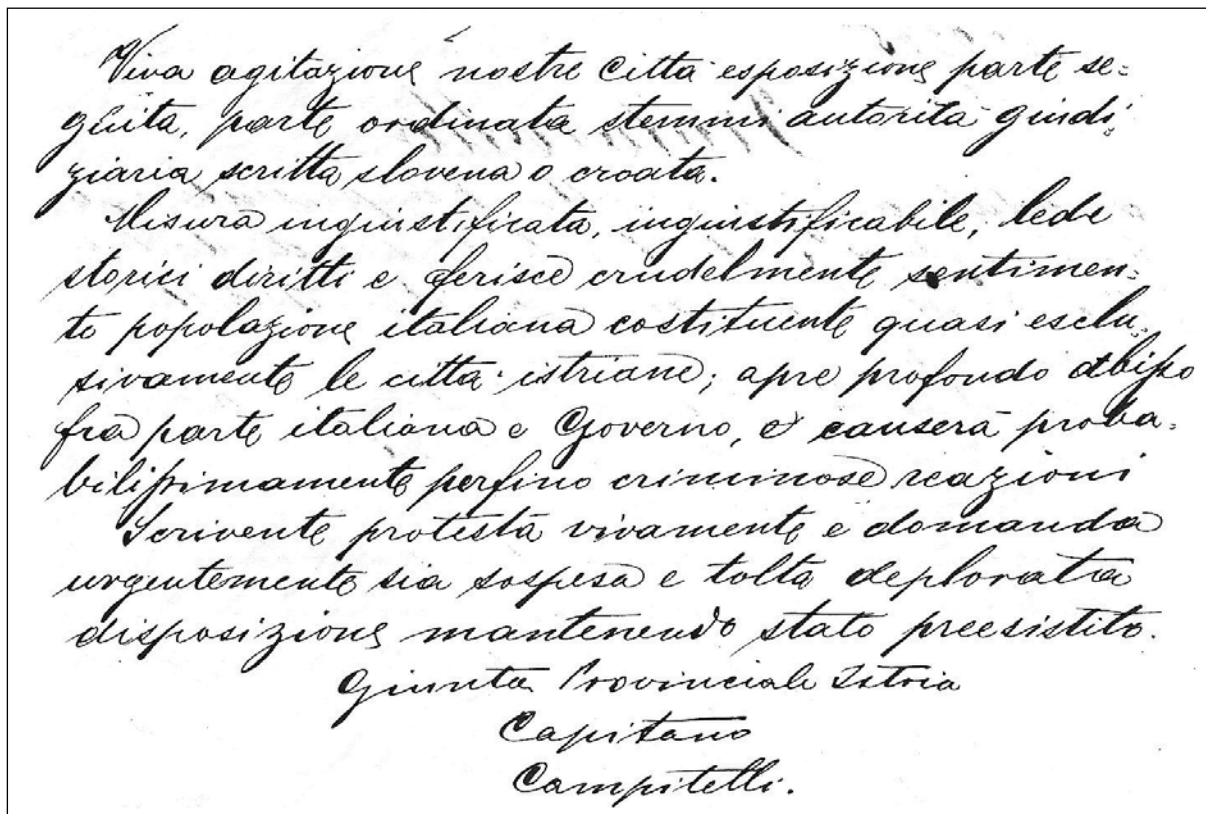 Viva agitazione nostre città esposizione parte se=
guita, parte ordinata stemmi autorità giudi=
ziaria scritta slovena o croata.
Misura ingiustificata, ingiustificabile, lede
storici diritti e ferisce crudelmente sentimen=
to popolazione italiana costituente quasi esclu=
sivamente le città istriane; apre profondo abisso
fra parte italiana e Governo, e causerà proba=
bilissimamente perfino criminose reazioni
Scrivente protesta vivamente e domanda
urgentemente sia sospesa e tolta deplorata
disposizione mantenendo stato preesistito.
Giunta Provinciale Istria
Capitano
Campitelli.